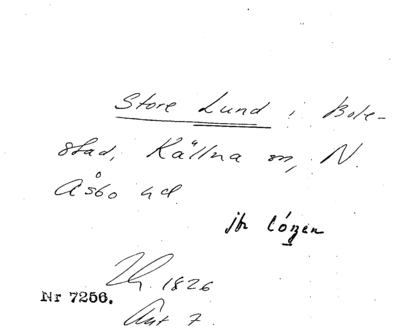 Store Lund i Bole-
stad, Källna sn, N.
Åsbo hd.
jfr lózen
Th. 1826
Nr 7256.
Ant 7.